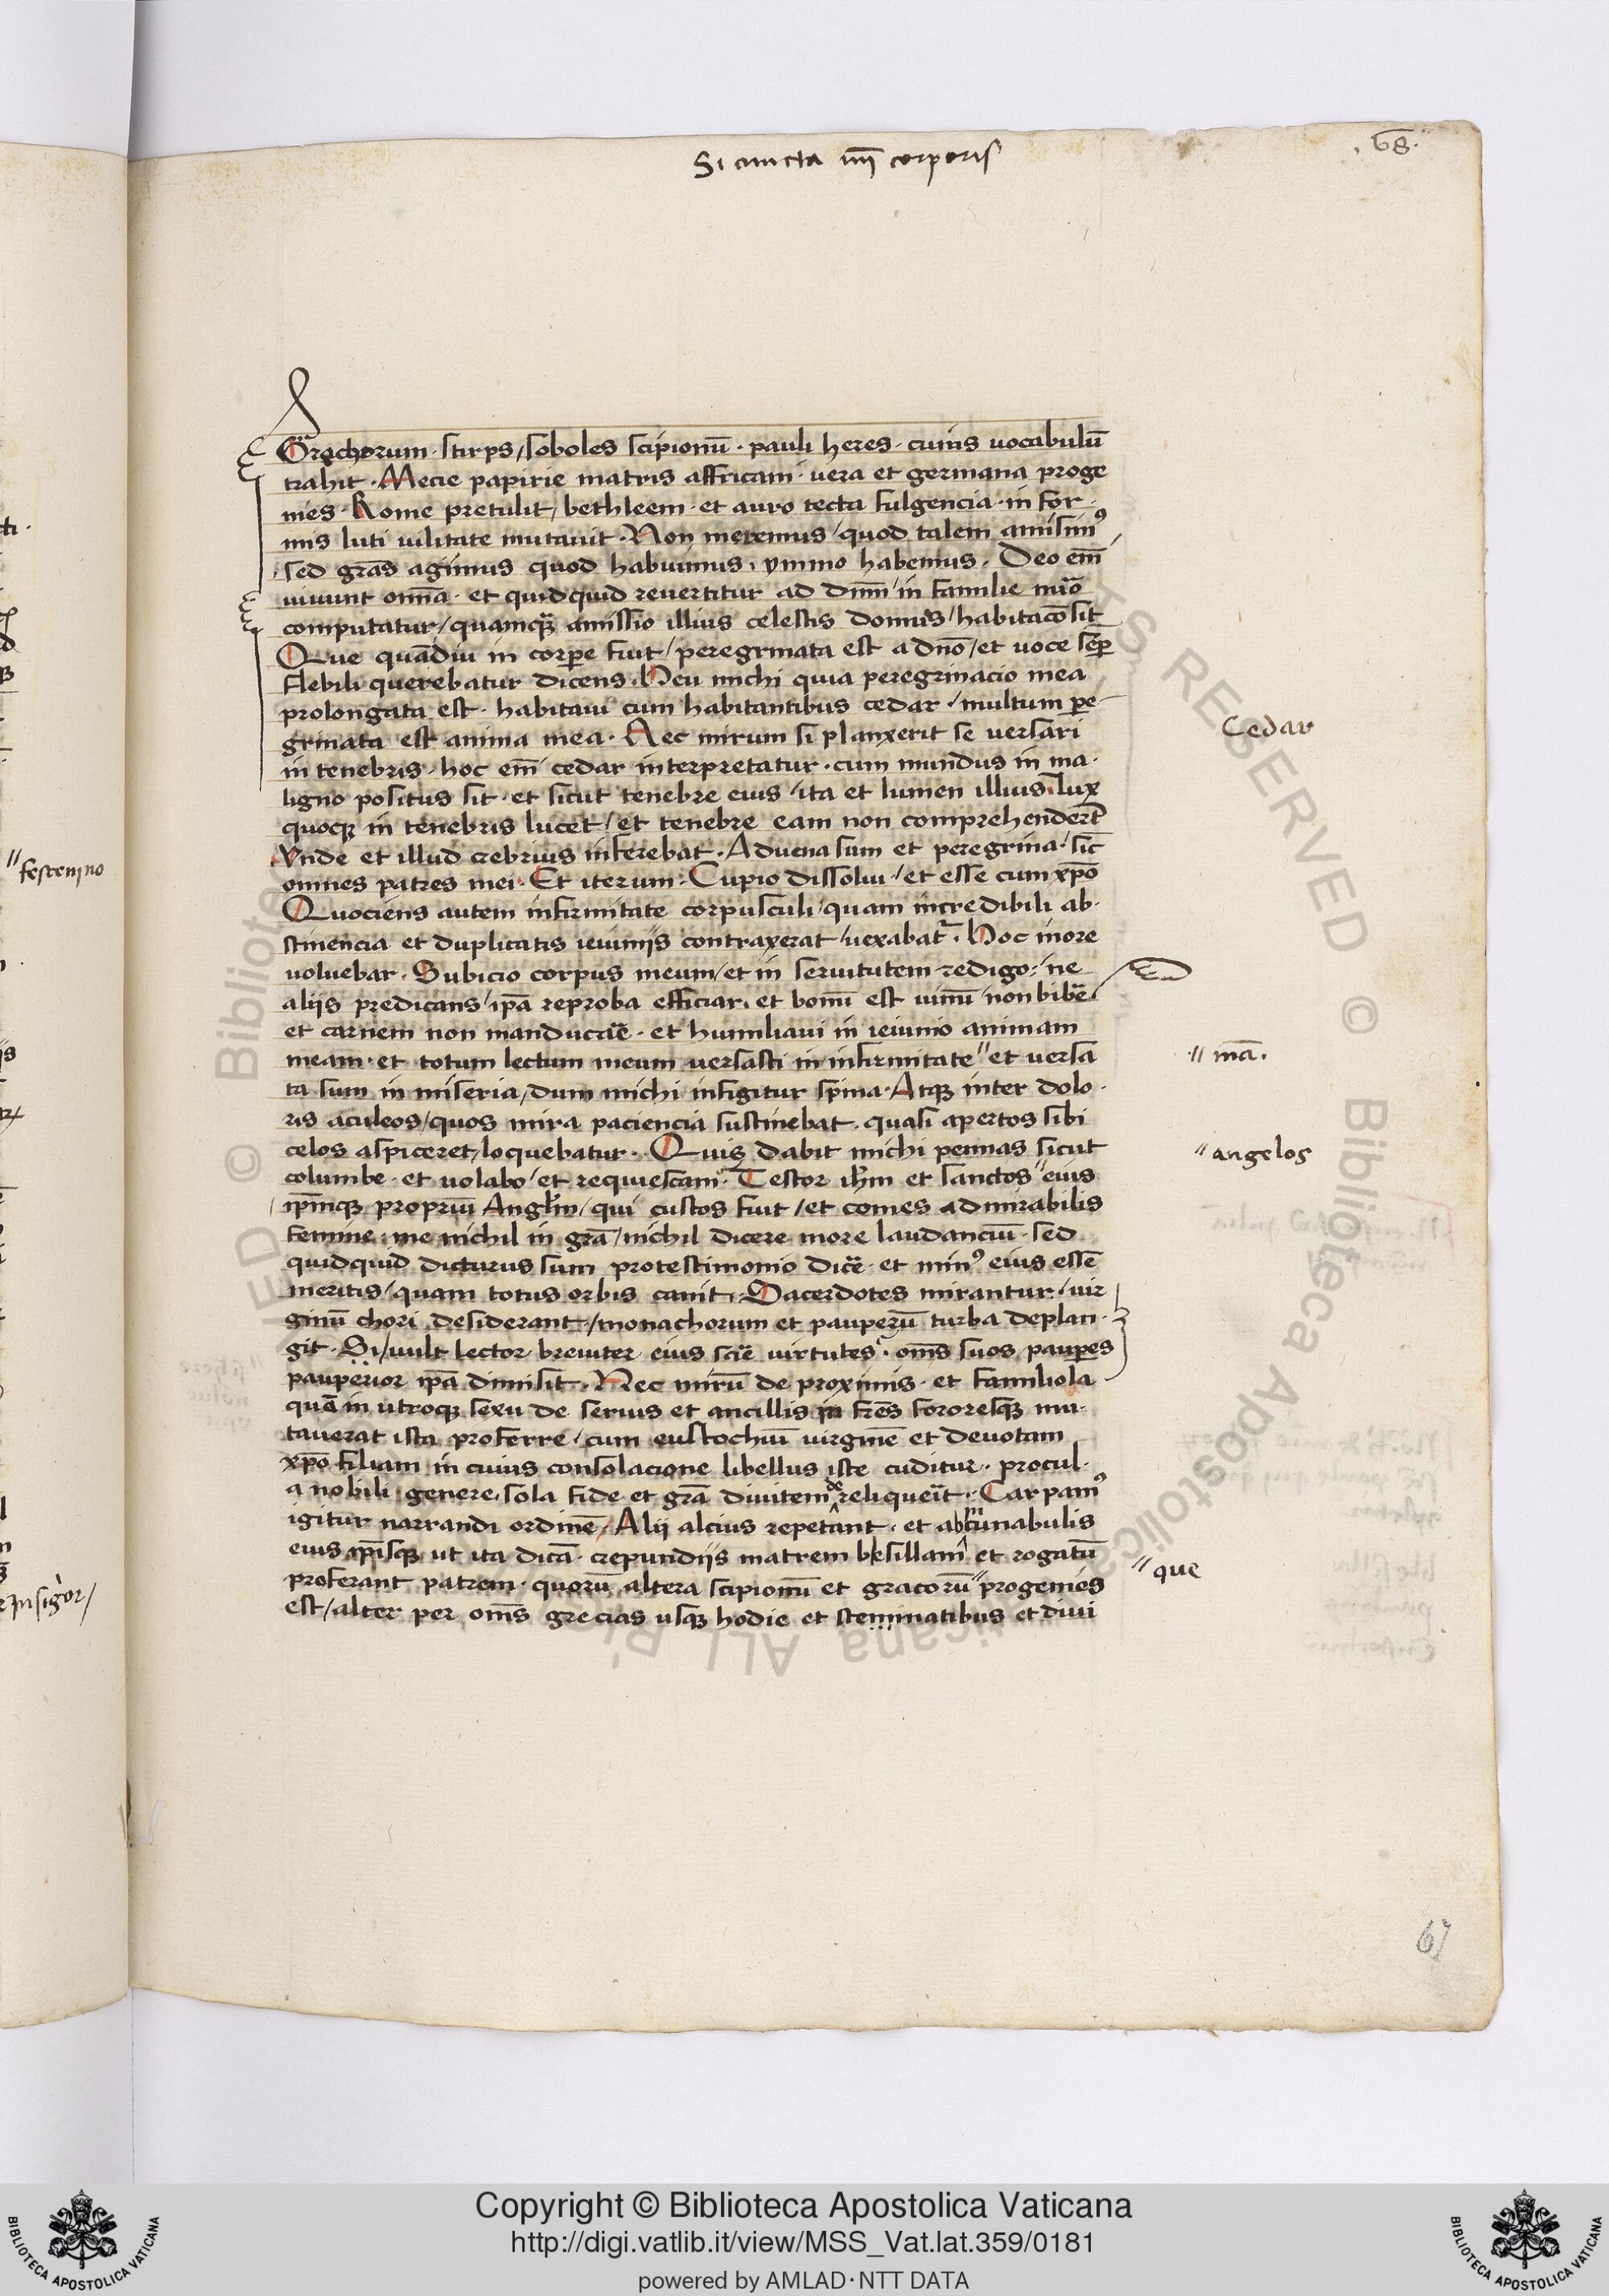 Si cuncta mei corporis
68.
Grachorum · stirps / soboles scipionū · pauli heres · cuius uocabulū
trahit · Mecie papirie matris affricani · uera et germana proge
nies · Rome pretulit / bethleem · et auro tecta fulgencia · in for
mis luti uilitate mutauit · Non meremus / quod talem amisimꝰ
sed grās agimus quod habuimus · ymmo habemus · Deo em̄
uiuunt omīa · et quidquid reuertitur ad dnm̄ / in familie
computatur / quamqꝫ amissio illius celestis domus / habitacō sit
Que quādiu in corpe fuit / peregrinata est a dno / et uoce semp
flebili querebatur dicens · Heu michi quia peregrinacio mea
prolongata est · habitaui cum habitantibus cedar / multum pe
grinata est anima mea · Nec mirum si planxerit se uersari
Cedar
in tenebris · hoc em̄ cedar interpretatur · cum mundus in ma
ligno positus sit · et sicut tenebre eius / ita et lumen illius · lux
quoqꝫ in tenebris lucet / et tenebre eam non comprehendert
Vnde et illud crebrius inferebat · Aduena sum et peregrina / sic̄
omnes patres mei · Et iterum · Cupio dissolui / et esse cum xpo
Quociens autem infirmitate corpusculi / quam incredibili ab
stinencia et duplicatis ieiuniis contraxerat / uexabat͛ · Hoc in ore
uoluebar · Subicio corpus meum / et in seruitutem redigo / ne
aliis predicans / ipā reproba efficiar · et bonū est uinū non bibe͛
et carnem non manducare · et humiliaui in ieiunio animam
meam · et totum lectum meum uersasti in infirmitate // et uersa
// mā.
ta sum in miseria / dum michi infigitur spina · Atqꝫ inter dolo
ris aculeos / quos mira paciencia sustinebat · quasi apertos sibi
celos aspiceret / loquebatur · Quis dabit michi pennas sicut
// angelos
columbe · et uolabo / et requiescam · Testor ihm et sanctos // eius
ipm̄qꝫ propriū Anglm / qui custos fuit / et comes admirabilis
femine · me nichil in grā / nichil dicere more laudanciū · sed
quidquid dicturus sum pro testimonio dice͛ · et minꝰ eius esse
meritis / quam totus orbis canit · Sacerdotes mirantur / uir
ginū chori desiderant / monachorum et pauperū turba deplan
git · Si / uult lector breuiter eius scire uirtutes · oms̄ suos paupes
pauperior ipā dimisit · Nec mirū de proximis · et familiola
quā in utroqꝫ sexu de seruis et ancillis in frēs sororesqꝫ mu
tauerat ista proferre / cum eustochiū uirginē et deuotam
xpo filiam in cuius consolacione libellus iste cuditur · procul
a nobili genere · sola fide et grā diuitem de reliquerit · Carpamꝰ
igitur narrandi ordinē / Alii alcius repetant · et ab cunabulis
eius ipīsqꝫ ut ita dicā · crepundiis matrem blesillam et rogatū
// que
proferant patrem · quorū altera scipionū et gracorū // progenies
est / alter per oms̄ grecias usqꝫ hodie et steminatibus et diui
67
// fescenino
Copyright © Biblioteca Apostolica Vaticana
http://digi.vatlib.it/view/MSS_Vat.lat.359/0181
powered by AMLAD·NTT DATA
BIBLIOTECA APOSTOLICA VATICANA
BIBLIOTECA APOSTOLICA VATICANA